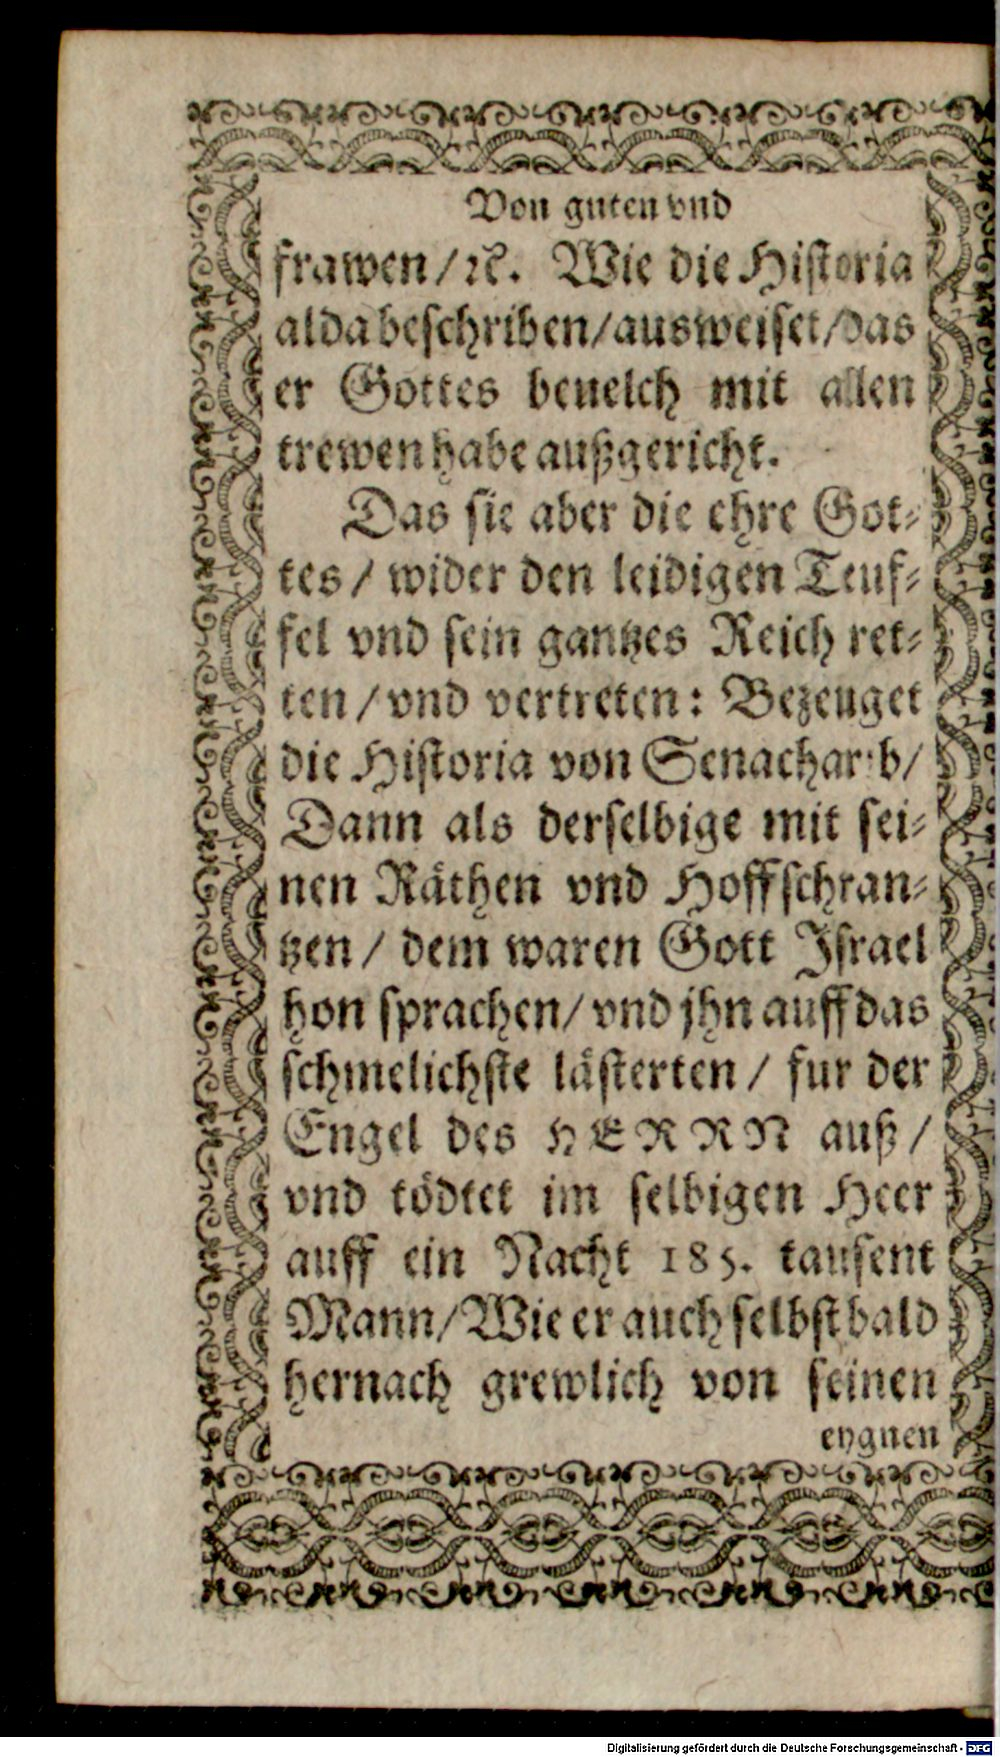 Von guten vnd
frawen / ꝛc. Wie die Historia
alda beschriben / ausweiset / das
er Gottes beuelch mit allen
trewen habe außgericht.
Das sie aber die ehre Got⸗
tes / wider den leidigen Teuf⸗
fel vnd sein gantzes Reich ret⸗
ten / vnd vertreten : Bezeuget
die Historia von Senacharib /
Dann als derselbige mit sei⸗
nen Räthen vnd Hoffschran⸗
tzen / dem waren Gott Israel
hon sprachen / vnd jhn auff das
schmelichste lästerten / fur der
Engel des HERRN auß /
vnd tödtet im selbigen Heer
auff ein Nacht 185. tausent
Mann / Wie er auch selbst bald
hernach grewlich von seinen
eygnen
Digitalisierung gefördert durch die Deutsche Forschungsgemeinschaft - DFG